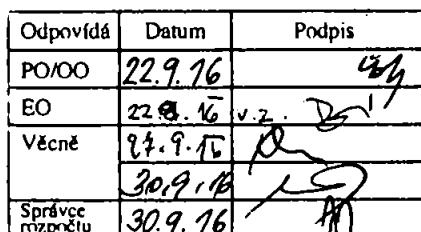 Odpovídá Datum Podpis
PO/OO 22.9.16
EO 22.9.16 v.z.
Věcně 27.9.16
30.9.16
Správce rozpočtu 30.9.16